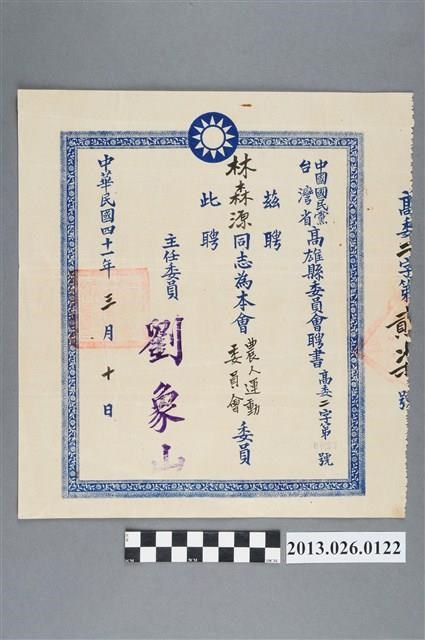 高委二字第貳柒號
中國國民黨
台灣省高雄縣委員會聘書高委二字第 號
茲聘
林森源同志為本會農人運動委員會委員
此聘
主任委員 劉象山
中華民國四十一年三月十日
CM
2013.026.0122